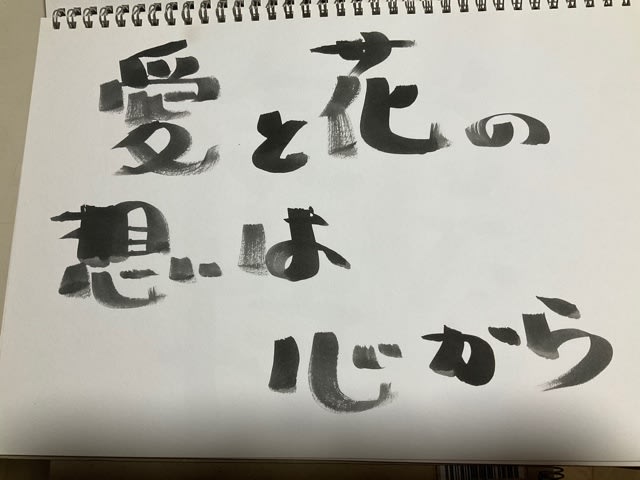 愛と花の
想は
心から